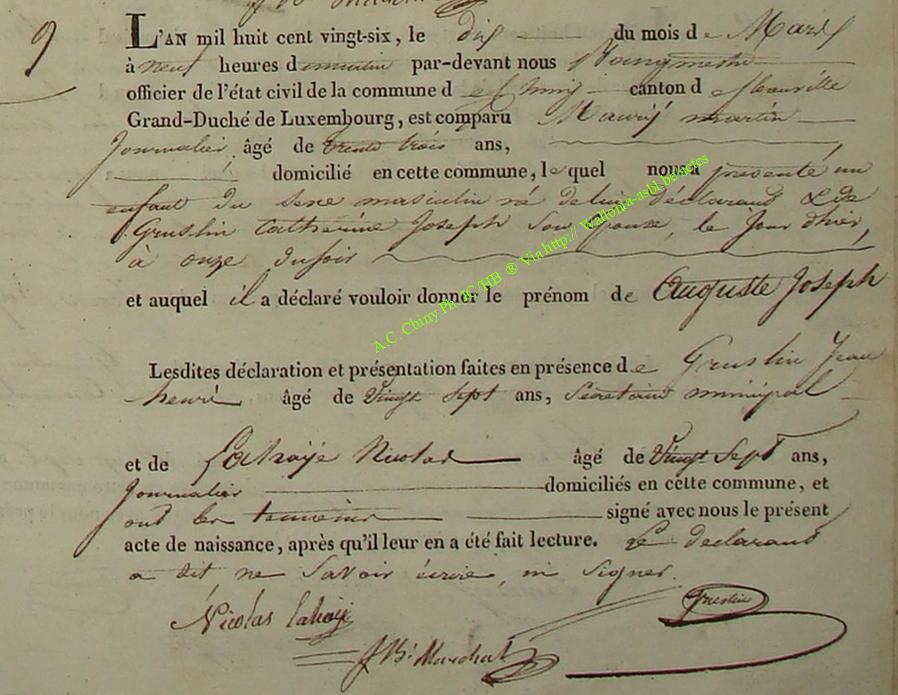 9
L'AN mil huit cent vingt-six, le dix du mois de Mars
à neuf heures du matin par-devant nous Bourgmestre
officier de l'état civil de la commune de Chiny canton de florenville
Grand-Duché de Luxembourg, est comparu Mauris martin
Journalier âgé de trente trois ans,
domicilié en cette commune, lequel nous a présenté un
enfant du sexe masculin né de lui déclarant & de
Gruslin Catherine Joseph son épouse, le jour d'hier,
à onze du soir
et auquel il a déclaré vouloir donner le prénom de Auguste Joseph
Lesdites déclaration et présentation faites en présence de Gruslin Jean
henri âgé de vingt sept ans, Secrétaire municipal
et de Lahaÿe Nicolas âgé de vingt sept ans,
Journalier domiciliés en cette commune, et
ont les temoins signé avec nous le présent
acte de naissance, après qu'il leur en a été fait lecture. Le declarant
a dit ne savoir écrire, ni signer.
Nicolas lahaije
Gruslin
J Bt Marechal
A.C. Chiny Ph JC/HB ® Via http:// wallonia-asbl.be/actes